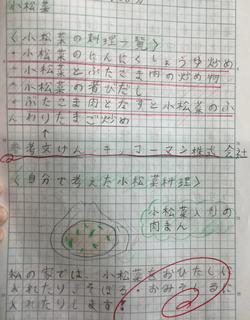 小松菜
〈小松菜の料理一覧〉
・小松菜のにんにくしょうゆ炒め
・小松菜とぶたこま肉の炒め物
・小松菜の煮びたし
・ぶたこま肉となすと小松菜のふ
んわりたまご炒め
参考文けん キッコーマン株式会社
〈自分で考えた小松菜料理〉
小松菜入りの
肉まん
私の家では、小松菜をおひたしに
入れたり、そぼろ、おみそしるに
入れたりします。